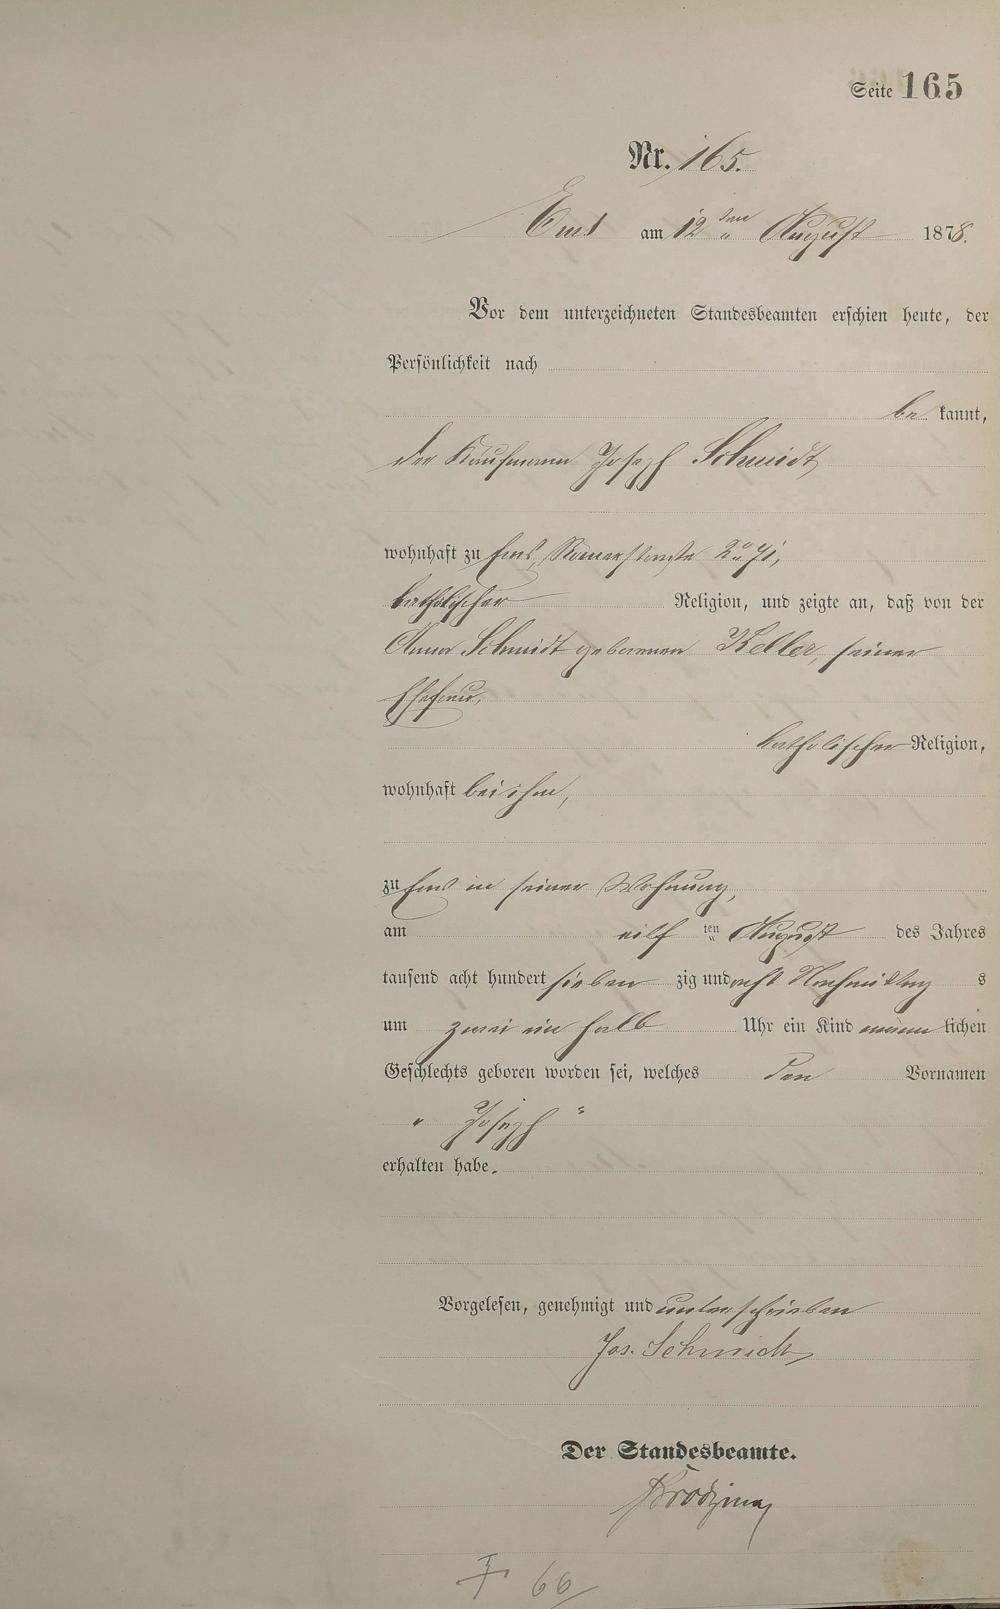 Seite 165
Nr. 165.
Ems am 12 ten August 1878.
Vor dem unterzeichneten Standesbeamten erschien heute, der
Persönlichkeit nach
be kannt,
der Kaufmann Joseph Schmidt,
wohnhaft zu Ems, Römerstraße
katholischer Religion, und zeigte an, daß von der
Anna Schmidt geborenen Keller, seiner
Ehefrau,
katholischer Religion,
wohnhaft bei ihm,
zu Ems in seiner Wohnung,
am eilf ten August des Jahres
tausend acht hundert sieben zig und acht Nachmittag s
um zwei ein halb Uhr ein Kind männ lichen
Geschlechts geboren worden sei, welches den Vornamen
"Joseph"
erhalten habe.
Vorgelesen, genehmigt und unterschrieben
Jos. Schmidt
Der Standesbeamte.
66